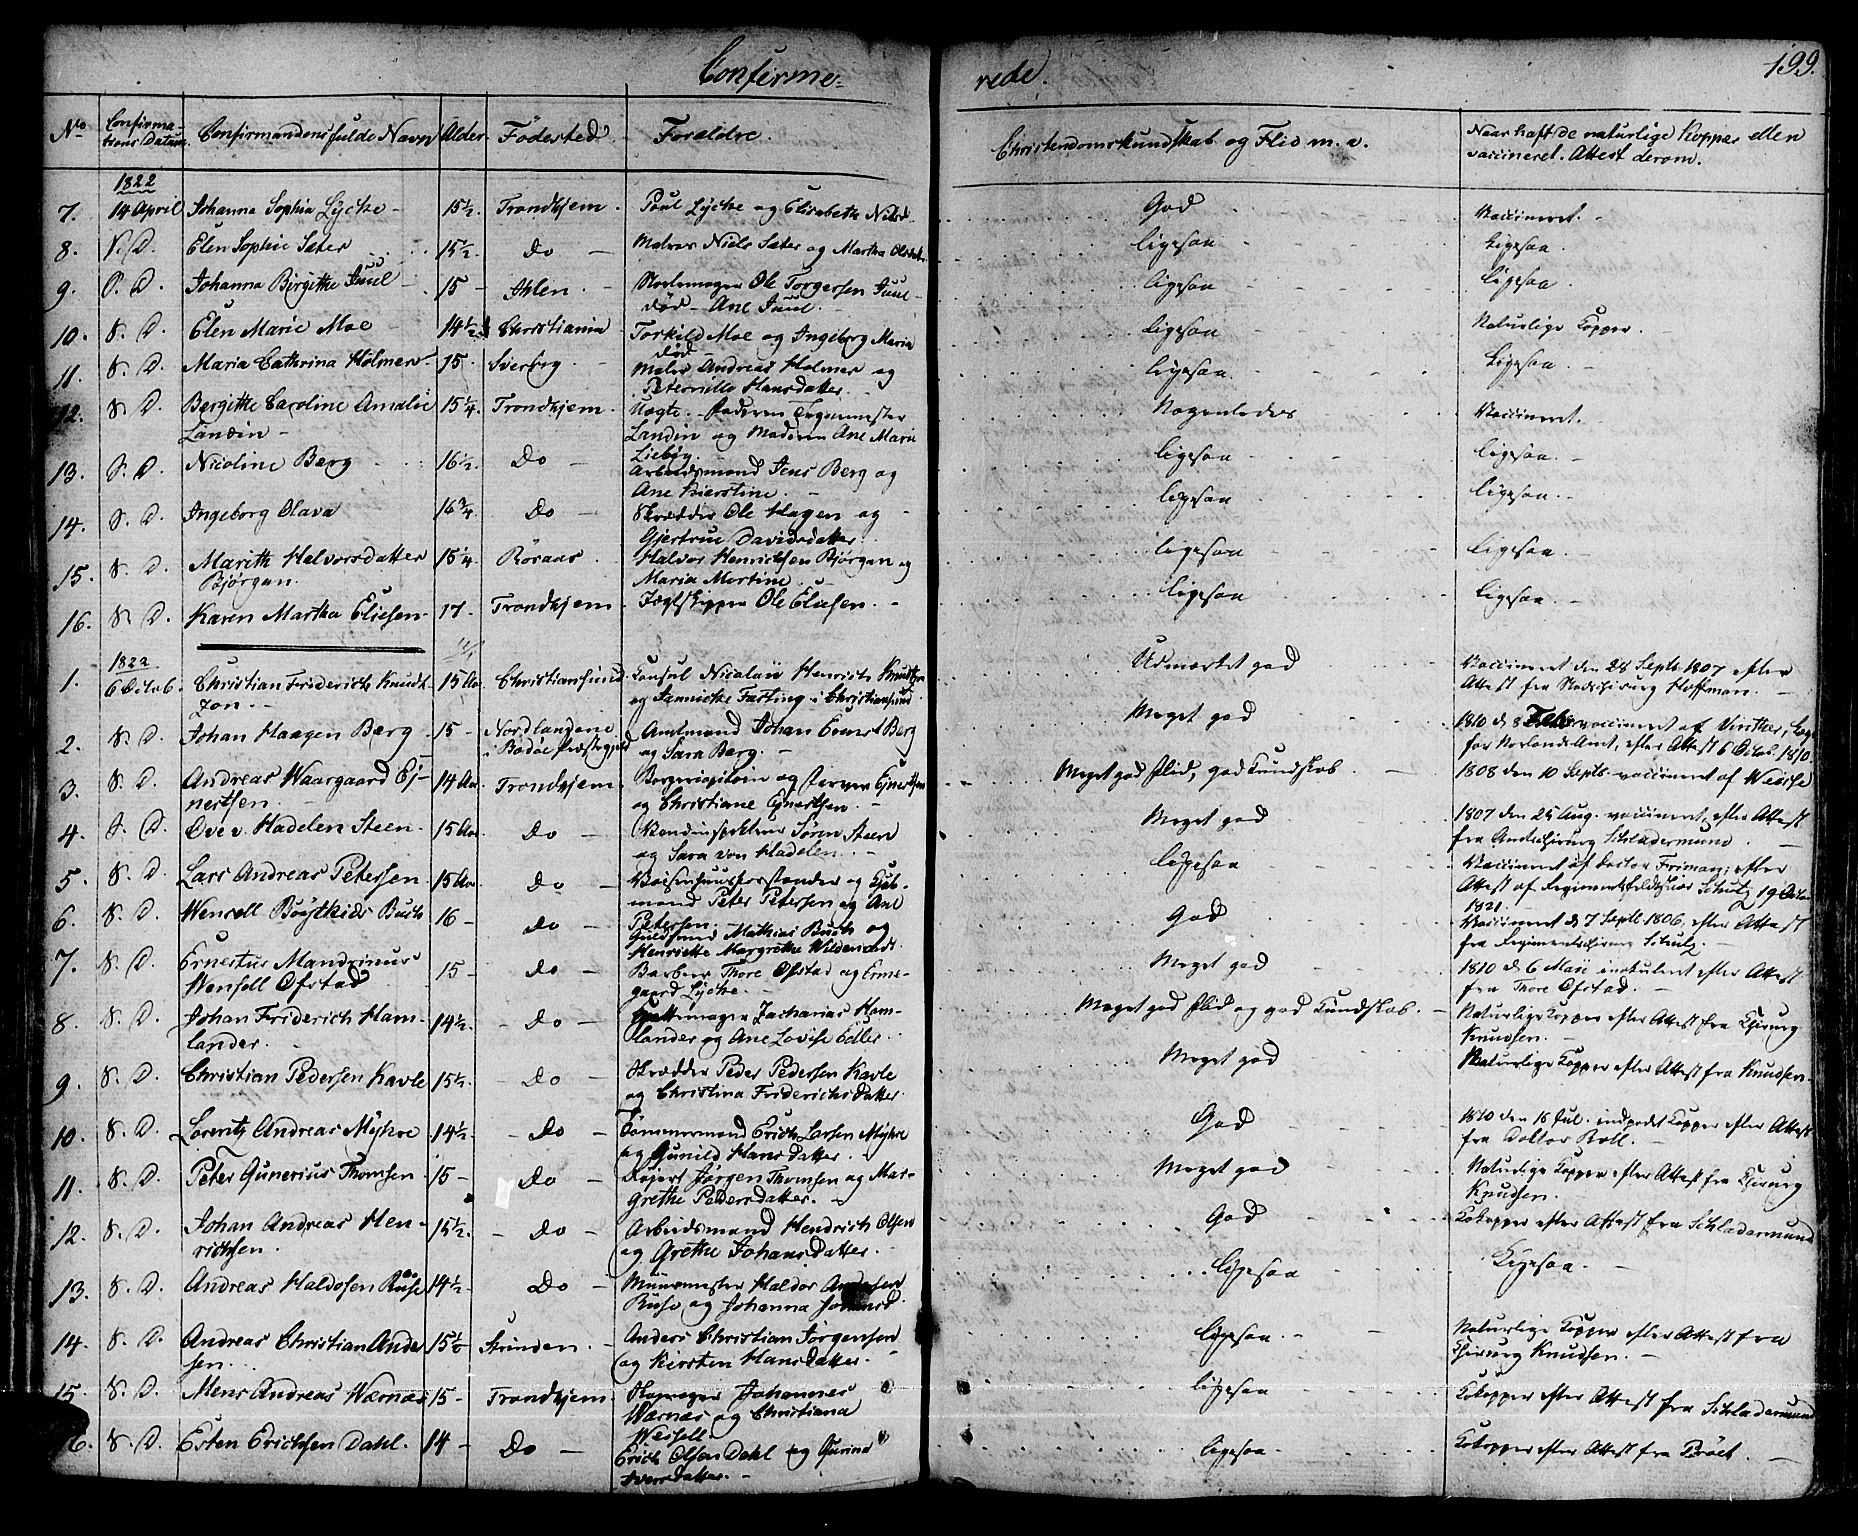 Confirme- rede. 199.
No Confirma- Confirmandens fulde Navn Alder Fødested Forældre. Christendomskundskab og Flid m. v. Naar haft de naturlige Kopper eller
tions Datum vaccineret. Attest derom.
1822
7. 14 April Johanna Sophia Lÿcke 15½. Trondhjem. Poul Lÿcke og Elisabeth Nilsd. God Vaccineret.
8. S. D. Elen Sophie Sæter 15½. Do Niels Sæter og Martha Olsdatter ligesaa Ligesaa.
9. S. D. Johanna Birgithe Juul 15 Ahlen Ole Torgersen Juul ligesaa ligesaa.
død - Ane Juul.
10. S. D. Elen Marie Moe 14½ Christiania Torkild Moe og Ingeborg Maria ligesaa Naturlige Kopper.
død
11. S. D. Maria Cathrina Holmer 15 Andreas Holmer og ligesaa. Ligesaa.
Hansdatter
12. S. D. Bergitte Caroline Amalie 15¼. Trondhjem. Uægte. Faderen Nogenledes Vaccineret.
Landin Landin og Moderen Ane Maria
13. S. D. Nicoline Berg 16½. Do Arbeidsmand Jens Berg og ligesaa. ligesaa.
Ane Kierstine.
14. S. D. Ingeborg Olava 16¾ Do Skrædder Ole Hagen og ligesaa ligesaa.
Gjertrue Davidsdatter
15. S. D. Marith Halvorsdatter 15¼ Röraas Halvor Henrichsen Bjørgan og ligesaa ligesaa.
Bjørgan. Maria Mortine.
16. S. D. Karen Martha Eliesen 17 Trondhjem Jægtskipper Ole Eliesen. ligesaa ligesaa.
1822
1. 6 Octob. Christian Friderich Knudt- 15 Aar Christiansund Consul Nicolai Henrich Knudtzon Udmærket god Vaccineret den 28 Septb. 1807 efter
zon. og Fasting i Christiansund Attest fra Hoffman.
2. S. D. Johan Haagen Berg 15 Nordlandene Amtmand Johan Ernst Berg Meget god 1810 d 8 Febr. vaccineret af
i Bodøe Præstegield og Sara Berg. for Norlands Amt, efter Attest 6 Octob. 1810.
3. S. D. Andreas Waargaard Ej- 14 Aar Trondhjem. Ejnertsen Meget god Flid, god Kundskab. 1808 den 10 Septb. vaccineret af
nertsen. og Christiane Ejnertsen.
4. S. D. Ove v. Hadelen Steen 15 Aar Do Søren Steen Meget god 1807 den 25 Aug. vaccineret efter Attest
og Sara von Hadelen. fra Amtschirurg Schladermund.
5. S. D. Lars Andreas Petersen 15 Aar Do Vaisenhuusforstander og Kjøb- ligesaa Vaccineret af Doctor Friman, efter
mand Peter Petersen og Ane Attest af Regimentsfeldtskiær Schutz 19 Octob
Petersen. 1821.
6. S. D. Wensell Buch 16 Do Guldsmed Mathias Buch og God Vaccineret d 7 Septb. 1806, efter Attest
Henriette Margrethe Wildenradt. fra Regimentschirurg Schutz.
7. S. D. Ernestus Mandrinus 15 Do Barbeer Thore Øfstad og Erme- Meget god 1810 d 6 Maii inokulent efter Attest
Wensell Øfstad gaard Lÿcke. fra Thore Øfstad.
8. S. D. Johan Friderich Ham- 14½. Do Zacharias Ham- Meget god Flid og god Kundskab. Naturlige Kopper efter Attest fra Chirurg
lander. lander og Ane Lovise Edler. Knudsen.
9. S. D. Christian Pedersen Kavle 15½ Do Skrædder Peder Pedersen Kavle Meget god Naturlige Kopper efter Attest fra Knudsen.
og Christina Friderichsdatter.
10. S. D. Lorentz Andreas Mÿhre 14½. Do Tømmermand Erich Larsen Mÿhre God 1810 den 16 Jul. indpodet Kopper efter Attest
og Gunild Hansdatter. fra Doktor Roll.
11. S. D. Peter Gunerius Thomsen 15 Do Jørgen Thomsen og Mar- Meget god Naturlige Kopper efter Attest fra Chirurg
grethe Pedersdatter. Knudsen.
12. S. D. Johan Andreas Hen- 15½. Do Arbeidsmand Hendrich Olsen God Kokopper efter Attest fra Schladermund
richsen. og Grethe Johansdatter.
13. S. D. Andreas Haldosen Ruse 14½ Do Muurmester Haldor Andersen Ligesaa Ligesaa.
Ruse og Johanna
14. S. D. Andreas Christian Ander 15½ Strinden. Anders Christian Jørgensen ligesaa. Naturlige Kopper efter Attest fra
sen. og Kiersten Hansdatter. Chirurg Knudsen.
15. S. D. Mens Andreas Wærnæs 15 Trondhjem Johannes ligesaa Kokopper efter Attest fra Schladermund
Wærnæs og Christiana
Wessell
16. S. D. Esten Erichsen Dahl. 14 Do Erich Olsen Dahl og Gurina ligesaa. Kokopper efter Attest fra
Iversdatter.